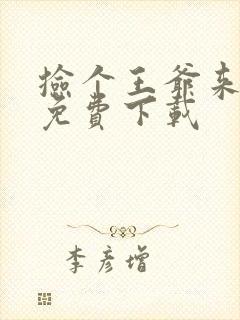 撿个王爺来
免費下載
李彦增